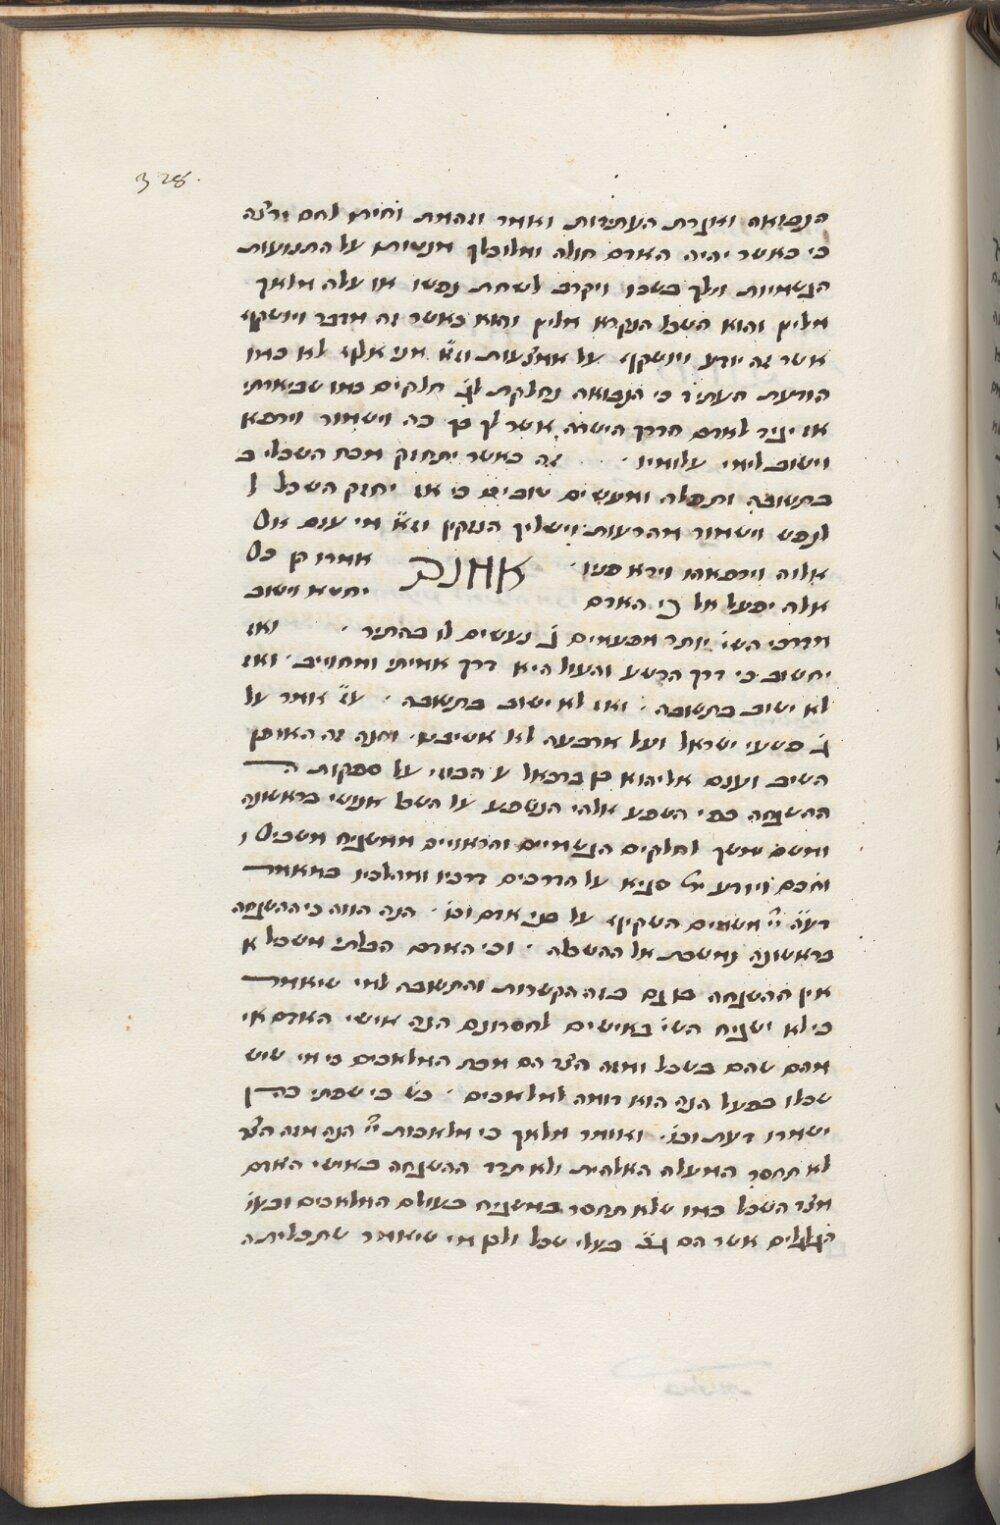 328.
הנבואה ואגרת העתידות ואומר וזהמת וחיתו לחם ירצה
כי כאשר יהיה האדם חולה ומלוכלך מנטות על התנועות
הגשמיות וילך בשכו ויקרב לשחת נפשו או עלה מלאך
מליץ והוא השכל הנקרא מליץ והוא כאשר זה מדבר ויושקיף
אשר זה יודע ויושקיף על אמצעות וז״א אני אליו לא כמו
הודעת העתיד כי הנבואה נחלקת לג׳ חלקים כמו שביארתי
או יגיד לאדם הדרך הישרה אשר לך בן כה וישמור וירפא
וישוב לימי עלומיו · זה כאשר יתחזק מכח השכלי ב
בתשובה ותפלה ומעשים טובים כי אז יחזק השכל ל
לנפש וישמור מהרעות וישליך הנזקין וז״א מי ענם אל
אלוה וירפאהו וירא פניו · אמנם אמרו הן כל
אלה יפעל אל כי האדם יחטא וישוב
מדרכי השי׳ יותר מפעמים ג׳ נעשים לו בהתיר · ואז
יחשוב כי דרך הרשע והעול היא דרך אמיתי ומחוייב · ואז
לא ישוב בתשובה · ואז לא ישוב בתשובה · ע״ז אומר על
ג׳ פשעי ישראל ועל ארבעה לא אשיבנו · והנה זה האופן
השיב וענם אליהוא בן ברכאל ע הבוזי על ספקות ה
ההשגחה כפי השפע אלהי הנשפע על השכל אנושי בראשונה
ומשם ימשך לחלקים הגשמיים והראויים ממשגיח משכיל ו
וחכם ויודע יל ספיא על הדרכים דרכיו ומהלכיו כמאמר
דע״ה יי׳ משמים השקיף על בני אדם וכו׳ · הנה הווה כי ההשגחה
בראשונה נמשכת אל ההשכלה · וכי האדם הבלתי משכל א
אין ההשגחה בו גם בזה הקשרות והתשובה למי שיאמר
כי לא ישגיח השי׳ באישים לחסרונם הנה אישי האדם אי
מהם שהם בשכל ומזה הצד הם מכת המלאכים כי מי שיש
שכלו בפעל הנה הוא דומה למלאכים · כש׳ כי שפתי כהן
ישמרו דעת וכו׳ · ואומר מלאך כי מלאכות יי׳ הנה מזה הצד
לא תחסר המעלה האלהית ולא תרד ההשגחה באישי האדם
מצד השכל כמו שלא תחסר במשגיח בעולם המלאכים ובעו׳
הגלגלים אשר הם ג״כ בעלי שכל ולכן מי שיאמר שתכליתה